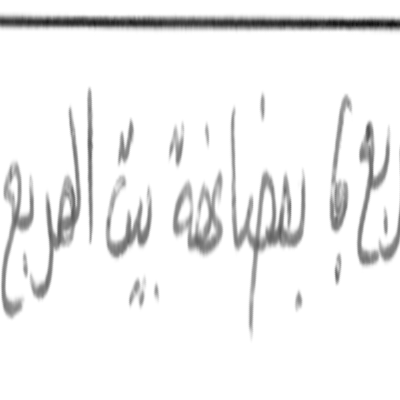 ربع ؟ بمضاعفة بيت المربع